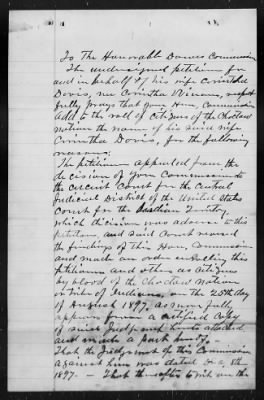 To The Honorable Dawes Commission
The undersigned petitions for
and in behalf of his wife Corintha
Davis, nee Corintha Winans, respect
fully prays that your Hon. Commission
add to the roll of citizens of the Choctaw
Nation the name of his said wife
Corintha Davis, for the following
reasons:
The petitioner appealed from the
decision of your Commission to
the circuit Court for the Central
Judicial District of the United States
Court for the Indian Territory,
which decision was adverse to this
petitioner, and said Court reversed
the findings of this Hon. Commission
and made an order enrolling this
petitioner and others as citizens
by blood of the Choctaw Nation
or tribe of Indians, on the 25th day
of August 1897, as more fully
appears from a certified Copy
of said Judgment hereto attached
and made a part hereof.
That the Judgment of this Commission
against him was dated
1897. — That thereafter to wit on the